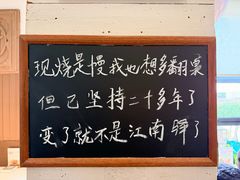 现烧是慢我也想多翻票
但已坚持二十多年了
变了就不是江南驿了